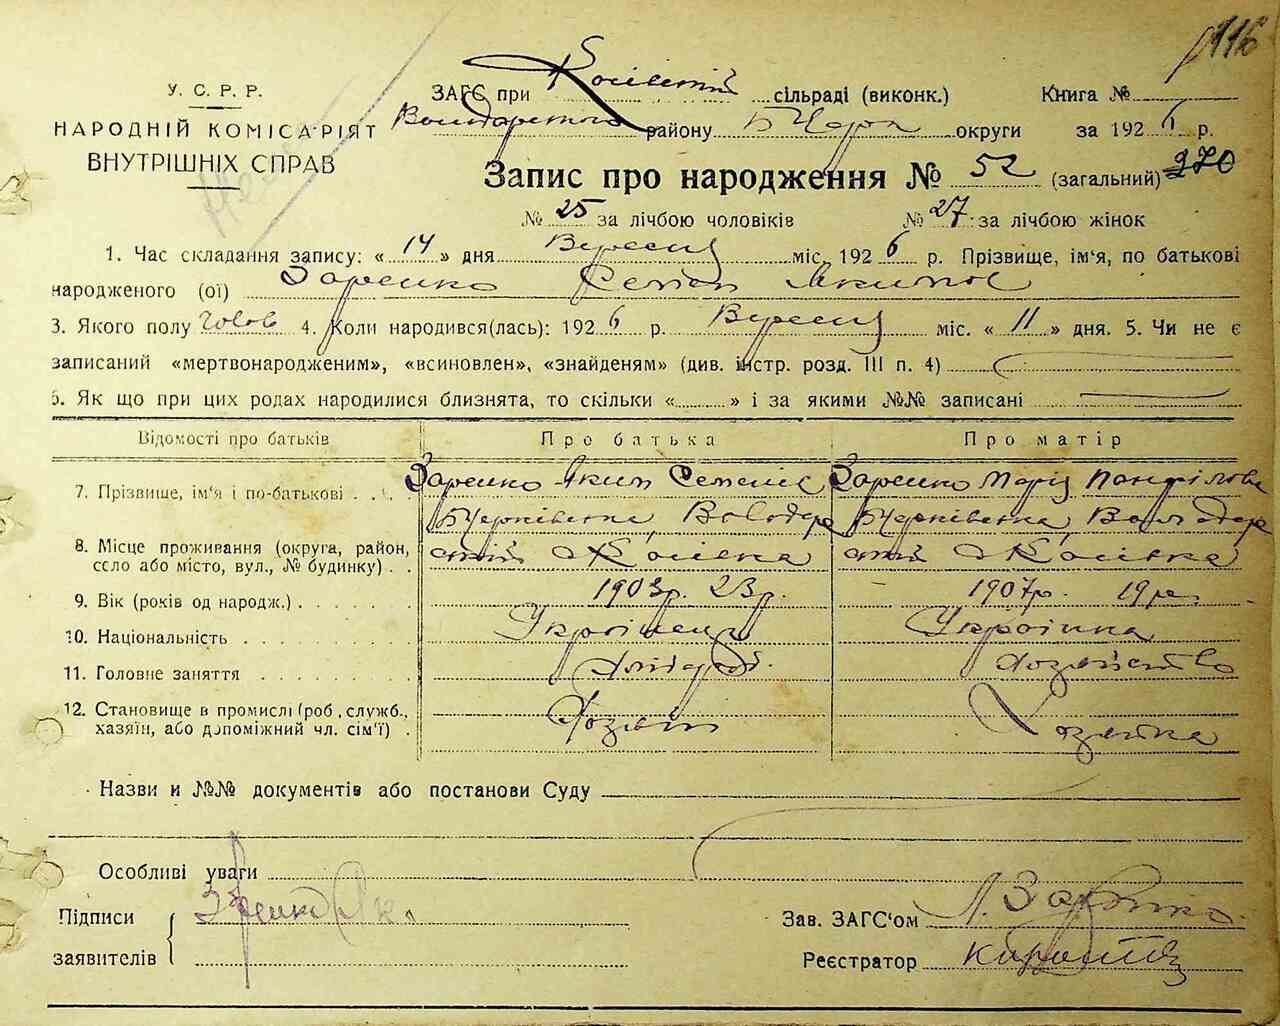 116
У. С. Р. Р.
НАРОДНІЙ КОМІСАРІЯТ
ВНУТРІШНІХ СПРАВ
ЗАГС при сільраді (виконк.) Книга №
району Б Церк округи за 1926 р.
Запис про народження № 52 (загальний) 270
№ 25 за лічбою чоловіків № 27 за лічбою жінок
1. Час складання запису: « 14 » дня Вересня міс. 1926 р. Прізвище, ім'я, по батькові
народженого (ої) Заренко Семен Якимов
3. Якого полу Чолов 4. Коли народився(лась): 1926 р. Вересня міс. « 11 » дня. 5. Чи не є
записаний «мертвонародженим», «всиновлен», «знайденям» (див. інстр. розд. III п. 4)
6. Як що при цих родах народилися близнята, то скільки « » і за якими №№ записані
Відомості про батьків Про батька Про матір
7. Прізвище, ім'я і по-батькові Заренко Яким Семенів Заренко Марія Панфілова
8. Місце проживання (округа, район, село або місто, вул., № будинку) Б Церківська Володар ський Косівка Б Церківська Володар ский Косівка
9. Вік (років од народж.) 1903р. 23р. 1907р. 19ро
10. Національність Українець Українка
11. Головне заняття Хлібороб. Хозяйство
12. Становище в промислі (роб., служб., хазяїн, або допоміжний чл. сім'ї) Хозяїн Хозяйка
Назви и №№ документів або постанови Суду
Особливі уваги
Підписи
заявителів
Зав. ЗАГС'ом
Реєстратор